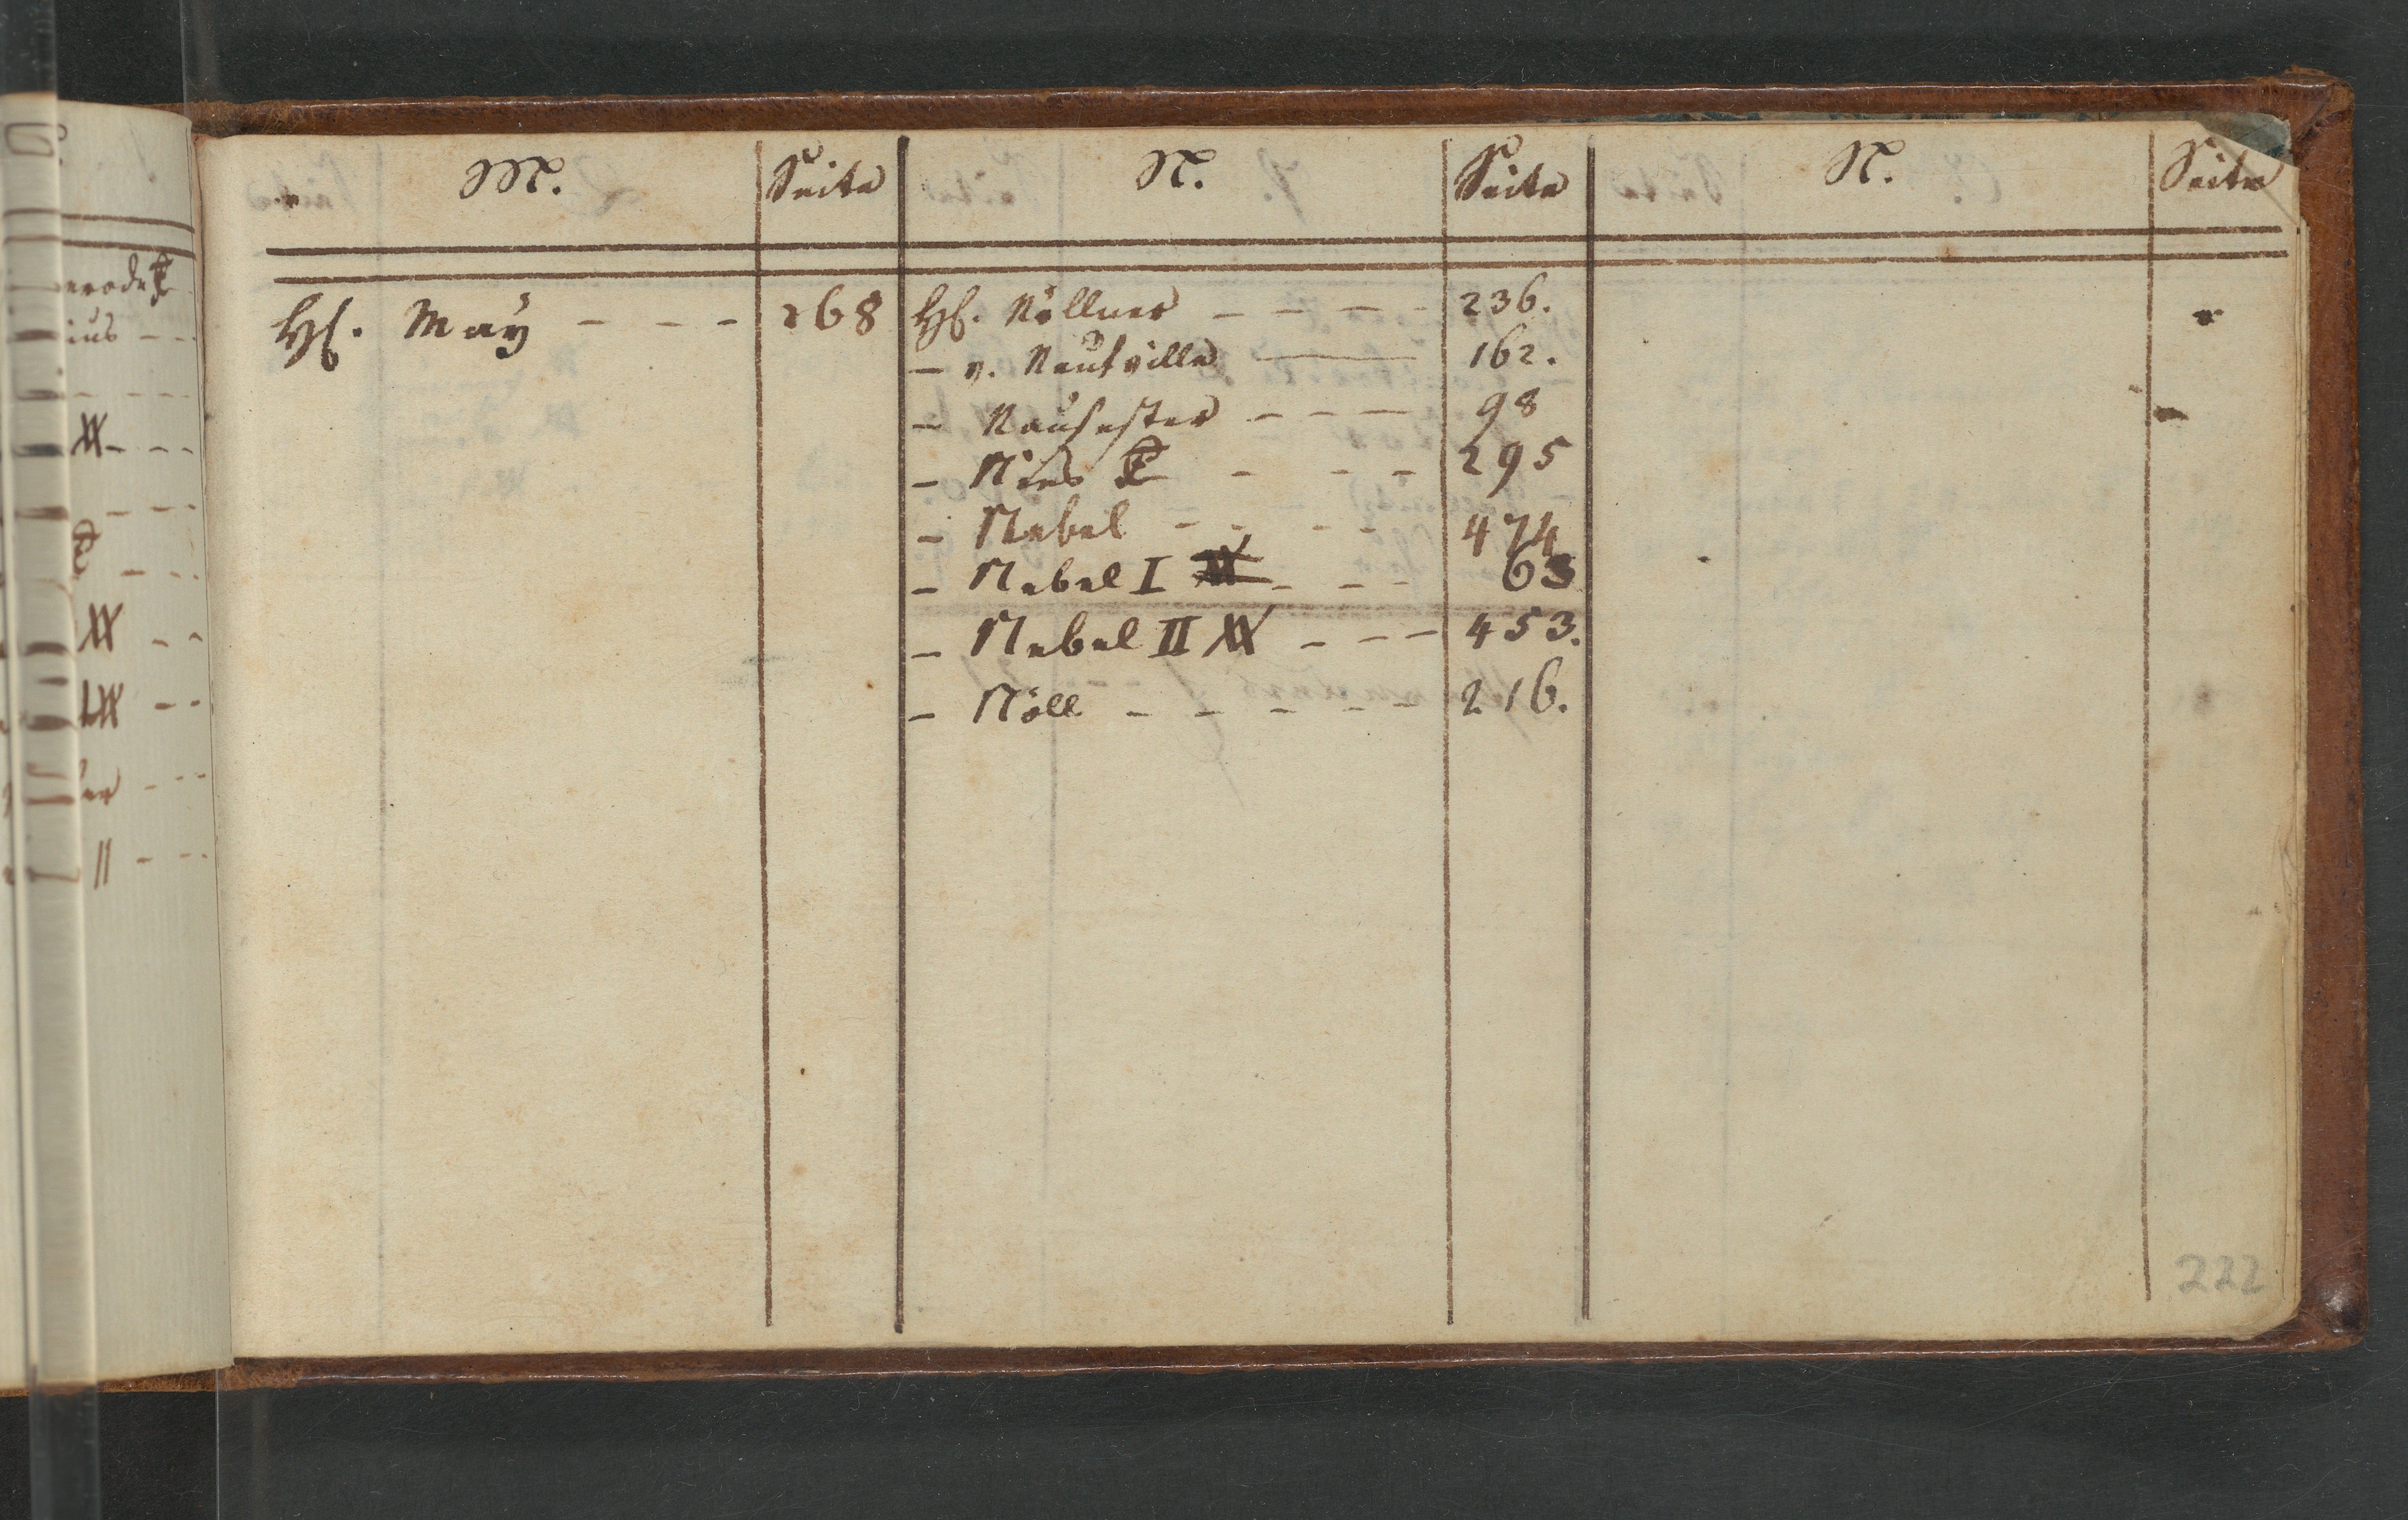 M. Seite N. Seite N. Seite
H. May - - - 268
H. Nöllner - - - - 236.
- v. Neufville 162.
- Neuhester - - - 98
- Nies - - - 295
- Nebel - - - - 474
- Nebel I - - - 63
- Nebel II - - - 453.
- Nöll - - - - - 216.
222